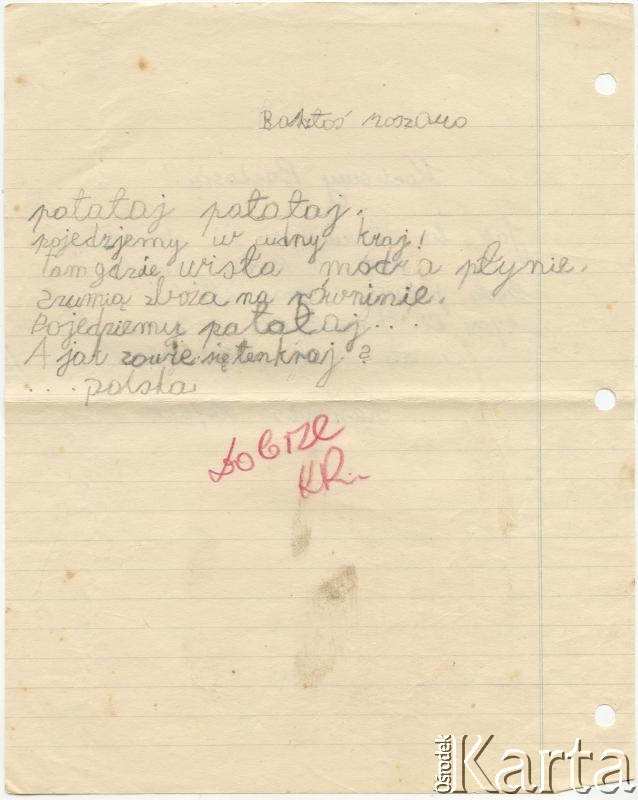 Baktoś roszavo
patataj patataj.
pojedzjemy w cudny kraj!
Tam gdzie wisła modra płynie.
Szumią zboża na równinie.
Pojedziemy patataj...
A jak zowie się ten kraj?
....polska
Dobrze
KR.
Ośrodek
Karta